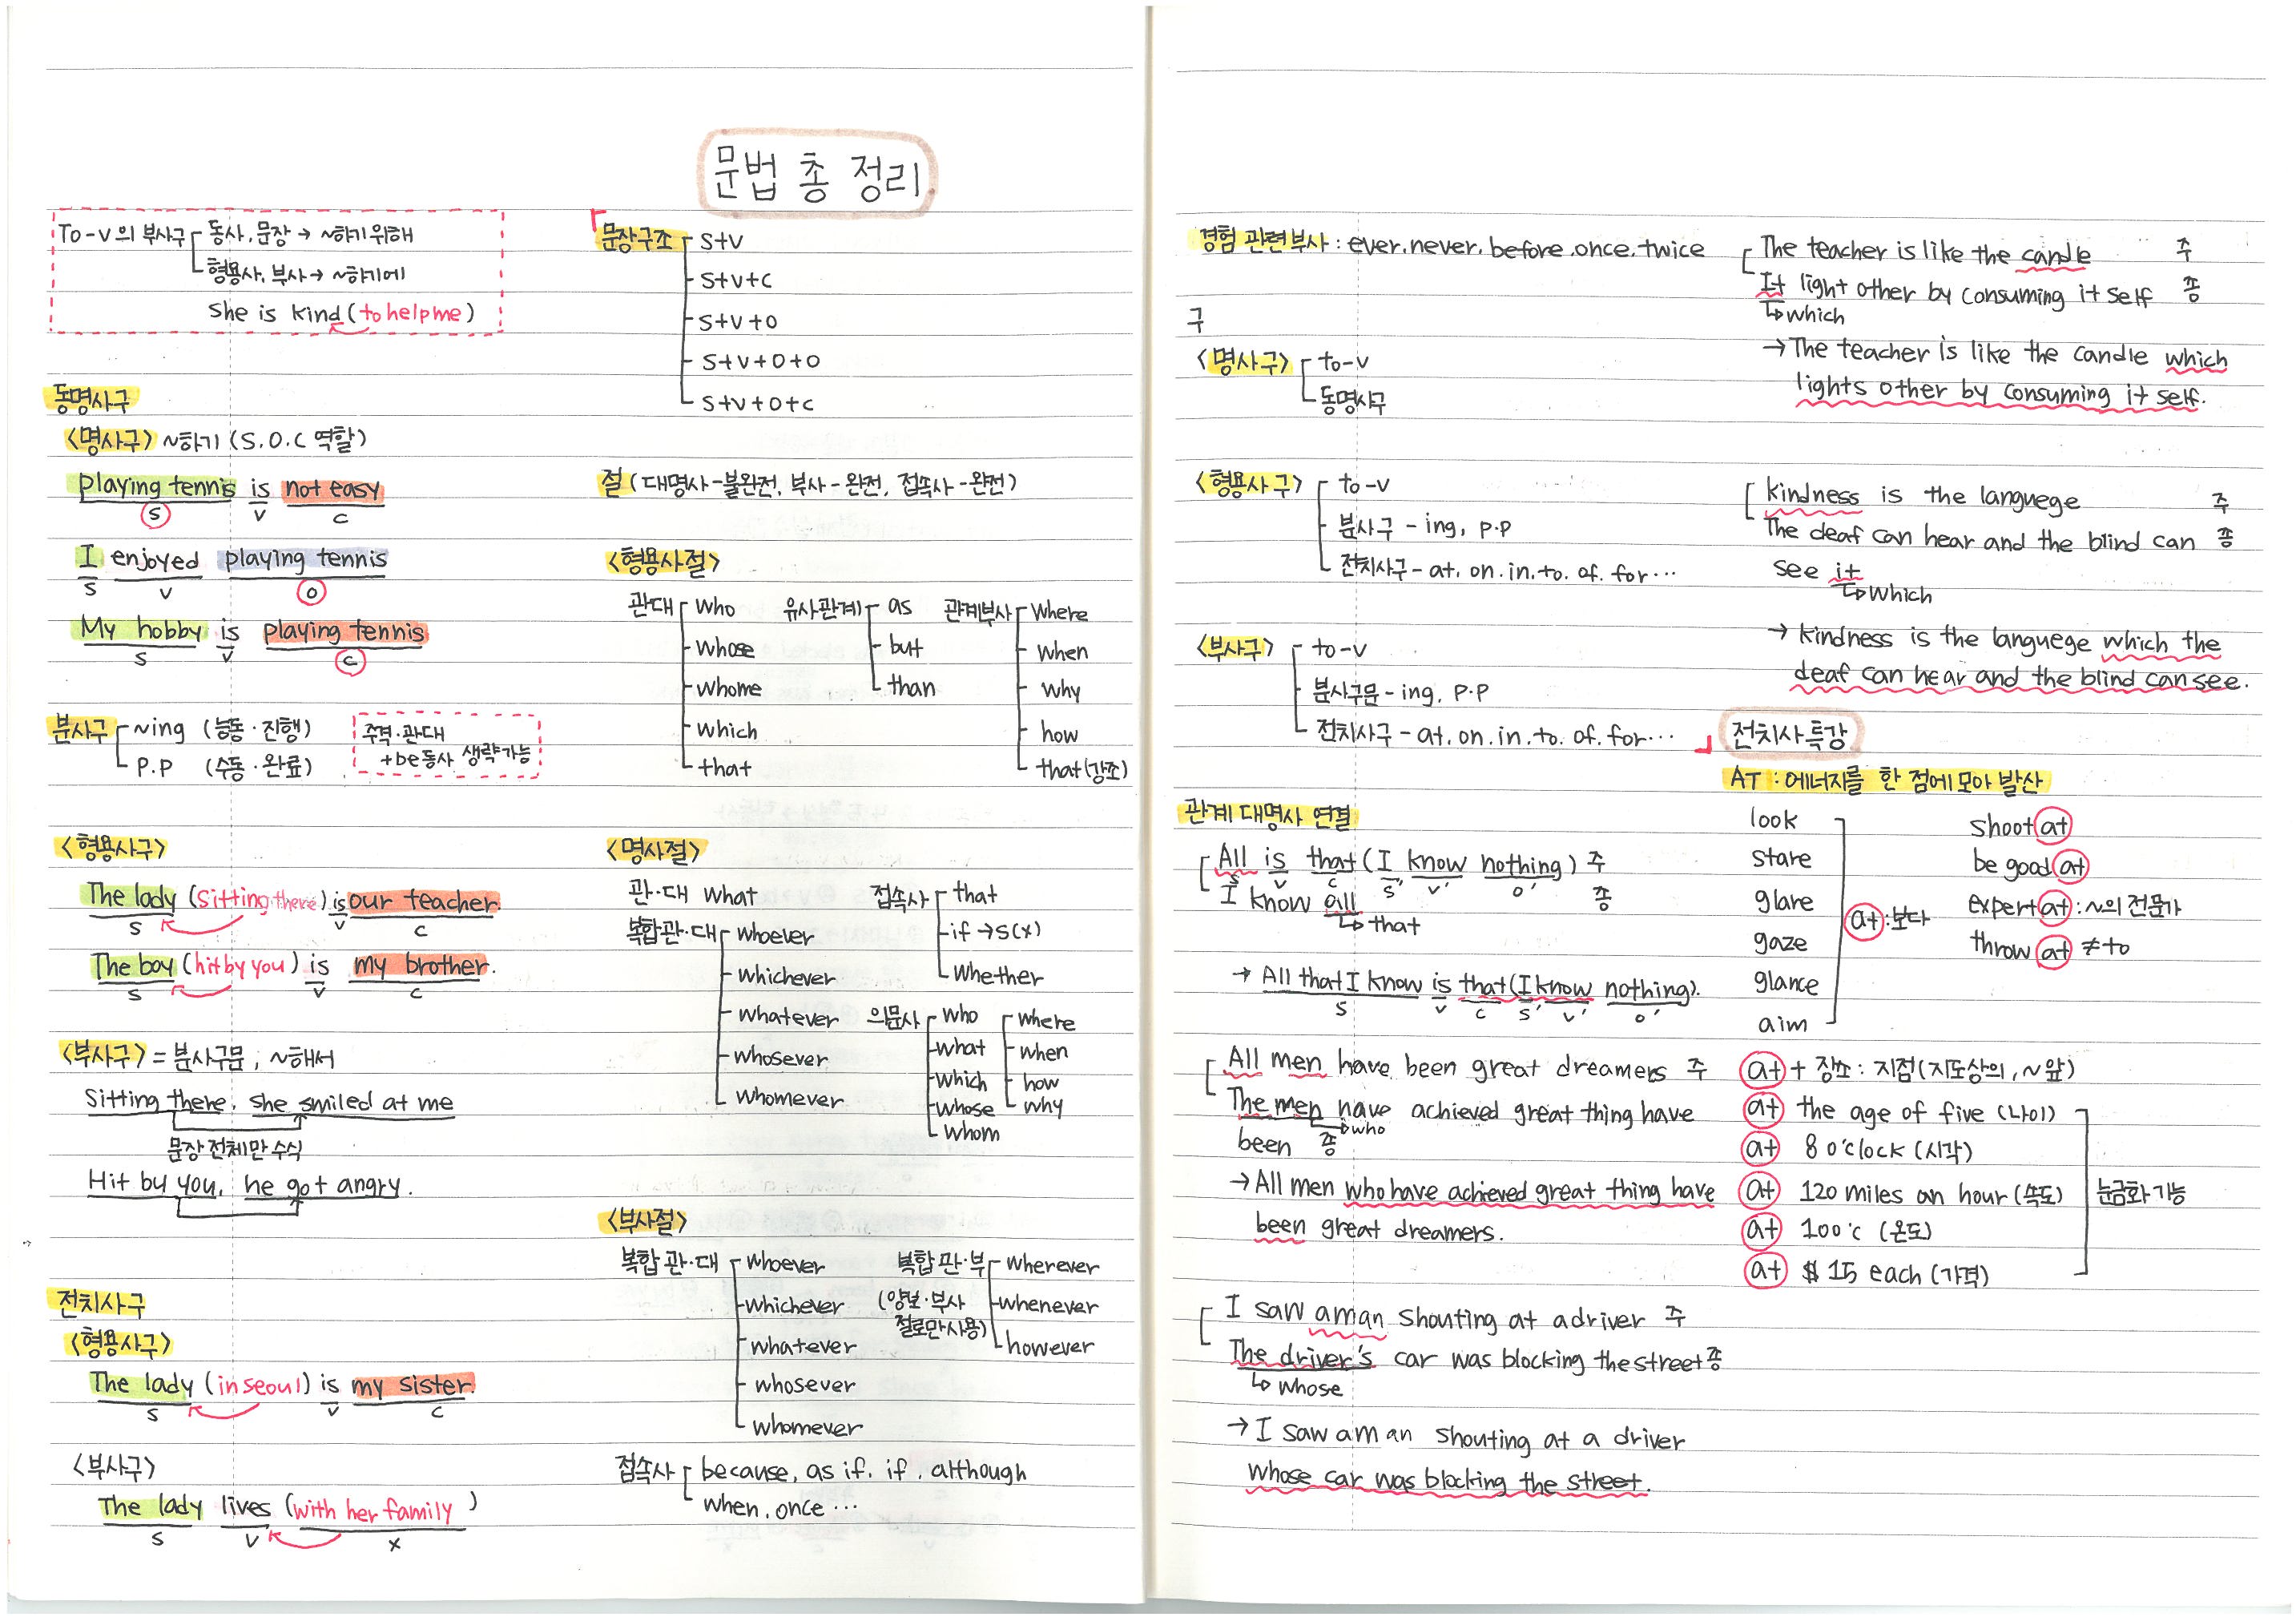 문법 총 정리
To-v의 부사구 동사, 문장 → ~하기 위해
형용사, 부사 → ~하기에
She is kind (to help me)
동명사구
<명사구> ~하기 (S.O.C 역할)
playing tennis is not easy
S V C
I enjoyed playing tennis
S V O
My hobby is playing tennis
S V C
분사구 ~ing (능동·진행)
P.P (수동·완료)
주격·관대
+be동사 생략가능
<형용사구>
The lady (sitting there) is our teacher.
S V C
The boy (hit by you) is my brother.
S V C
<부사구> = 분사구문, ~해서
Sitting there, she smiled at me
문장 전체만 수식
Hit by you, he got angry.
전치사구
<형용사구>
The lady (in seoul) is my sister.
S V C
<부사구>
The lady lives (with her family)
S V X
문장구조 S+V
S+V+C
S+V+O
S+V+O+O
S+V+O+C
절 (대명사-불완전, 부사-완전, 접속사-완전)
<형용사절>
관대 who
whose
whome
which
that
유사관계 as
but
than
관계부사 where
when
why
how
that(강조)
<명사절>
관·대 what
복합관·대 whoever
whichever
whatever
whosever
whomever
접속사 that
if →S(x)
whether
의문사 who
what
which
whose
whom
where
when
how
why
<부사절>
복합 관·대 whoever
whichever
whatever
whosever
whomever
복합 관·부 wherever
(양보·부사 whenever
절로만 사용) however
접속사 because, as if, if, although
when, once ...
경험 관련부사 : ever, never, before, once, twice
구
<명사구> to-v
동명사구
<형용사구> to-v
분사구 - ing, p.p
전치사구 - at, on, in, to, of, for ...
<부사구> to-v
분사구문 - ing, p.p
전치사구 - at, on, in, to, of, for ...
관계 대명사 연결
All is that (I know nothing) 주
S V C S' V' O'
I know all 종
↳ that
→ All that I know is that (I know nothing).
S V C S' V' O'
All men have been great dreamers 주
The men have achieved great thing have
→who
been 종
→ All men who have achieved great thing have
been great dreamers.
I saw a man shouting at a driver 주
The driver's car was blocking the street 종
↳ whose
→ I saw a man shouting at a driver
whose car was blocking the street.
The teacher is like the candle 주
It light other by consuming it self 종
↳which
→ The teacher is like the candle which
lights other by consuming it self.
kindness is the languege 주
The deaf can hear and the blind can 종
see it
↳ which
→ kindness is the languege which the
deaf can hear and the blind can see.
전치사 특강
AT : 에너지를 한 점에 모아 발산
look
stare
glare
gaze
glance
aim
at : 보다
shoot at
be good at
expert at : ~의 전문가
throw at ≠ to
at + 장소 : 지점(지도상의, ~앞)
at the age of five (나이)
at 8 o'clock (시각)
at 120 miles an hour (속도)
at 100°c (온도)
at $ 15 each (가격)
눈금화 기능